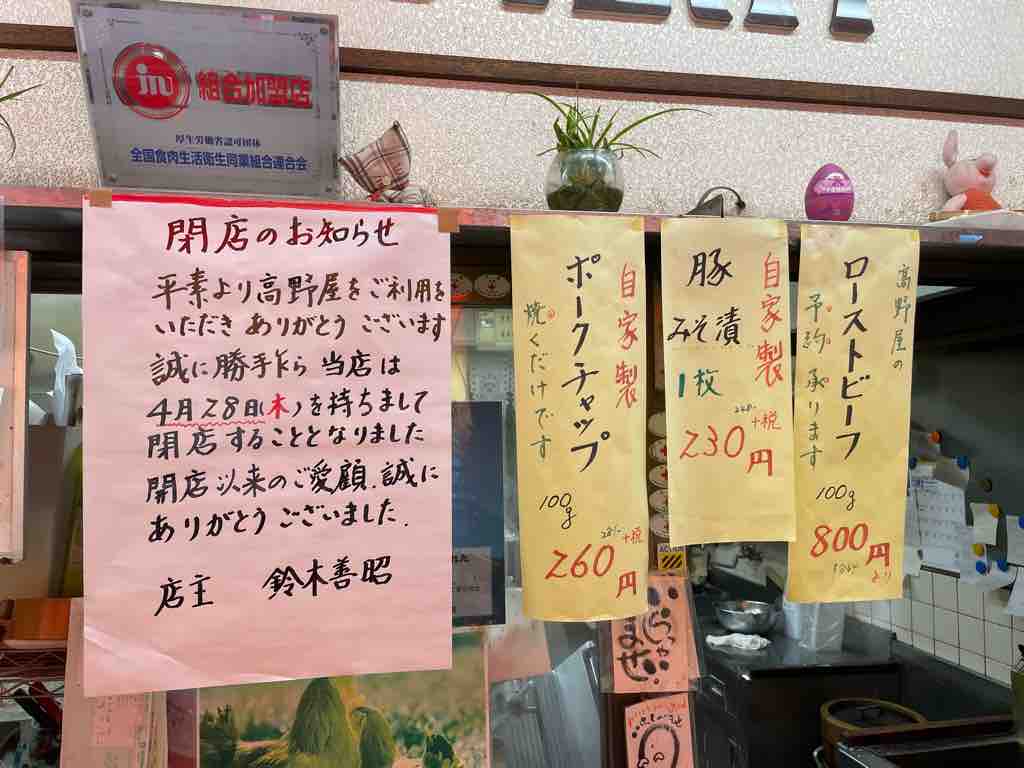 組合加盟店
厚生労働省認可団体
全国食肉生活衛生同業組合連合会
閉店のお知らせ
平素より高野屋をご利用を
いただき ありがとう ございます
誠に勝手乍ら 当店は
4月28日(木)を持ちまして
閉店することとなりました
開店以来のご愛顧.誠に
ありがとう ございました.
店主 鈴木善昭
自家製
ポークチャップ
焼くだけです
100g
281-
+税
260円
自家製
豚
みそ漬
1枚
248-
+税
230円
高野屋の
ローストビーフ
予約承ります
100g
800円
より
ACTION
いらっしゃい
ませ